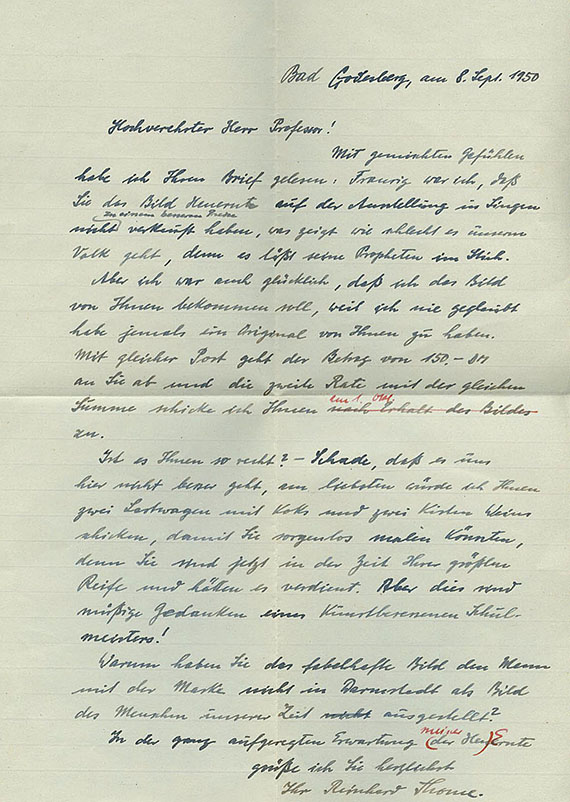 Bad Godesberg, am 8. Sept. 1950
Hochverehrter Herr Professor!
Mit gemischten Gefühlen
habe ich Ihren Brief gelesen. Traurig war ich, daß
Sie das Bild Heuernte auf der Ausstellung in Singen
zu einem besseren Preise
nicht verkauft haben, was zeigt wie schlecht es unserm
Volk geht, denn es läßt seine Propheten im Stich.
Aber ich war auch glücklich, daß ich das Bild
von Ihnen bekommen soll, weil ich nie geglaubt
habe jemals ein Original von Ihnen zu haben.
Mit gleicher Post geht der Betrag von 150.- DM
an Sie ab und die zweite Rate mit der gleichen
am 1. Okt.
Summe schicke ich Ihnen nach Erhalt des Bildes
zu.
Ist es Ihnen so recht? - Schade, daß es uns
hier nicht besser geht, am liebsten würde ich Ihnen
zwei Lastwagen mit Koks und zwei Kisten Weins
schicken, damit Sie sorgenlos malen könnten,
denn Sie sind jetzt in der Zeit Ihrer größten
Reife und hätten es verdient. Aber dies sind
müßige Gedanken eines Kunstbesessenen Schul-
meisters!
Warum haben Sie das fabelhafte Bild den Mann
mit der Maske nicht in Darmstadt als Bild
des Menschen unserer Zeit nicht ausgestellt?
meiner
In der ganz aufgeregten Erwartung (der Heu)Ernte
grüße ich Sie herzlichst
Ihr Reinhard Thome.